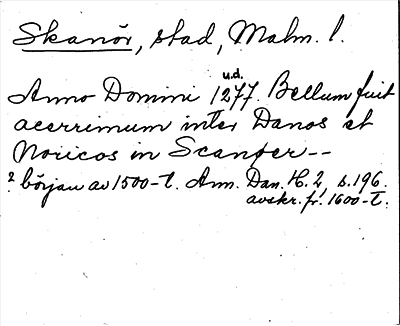 Skanör, stad, Malm. l.
u.d.
Anno Domini 1277. Bellum fuit
acerrimum inter Danos et
Noricos in Scanfer--
? början av 1500-t. Ann. Dan. H. 2, s. 196.
avskr. fr. 1600-t.